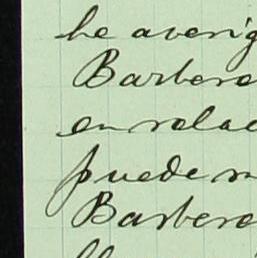 he averig
Barbero
en relac
puede m
Barbero